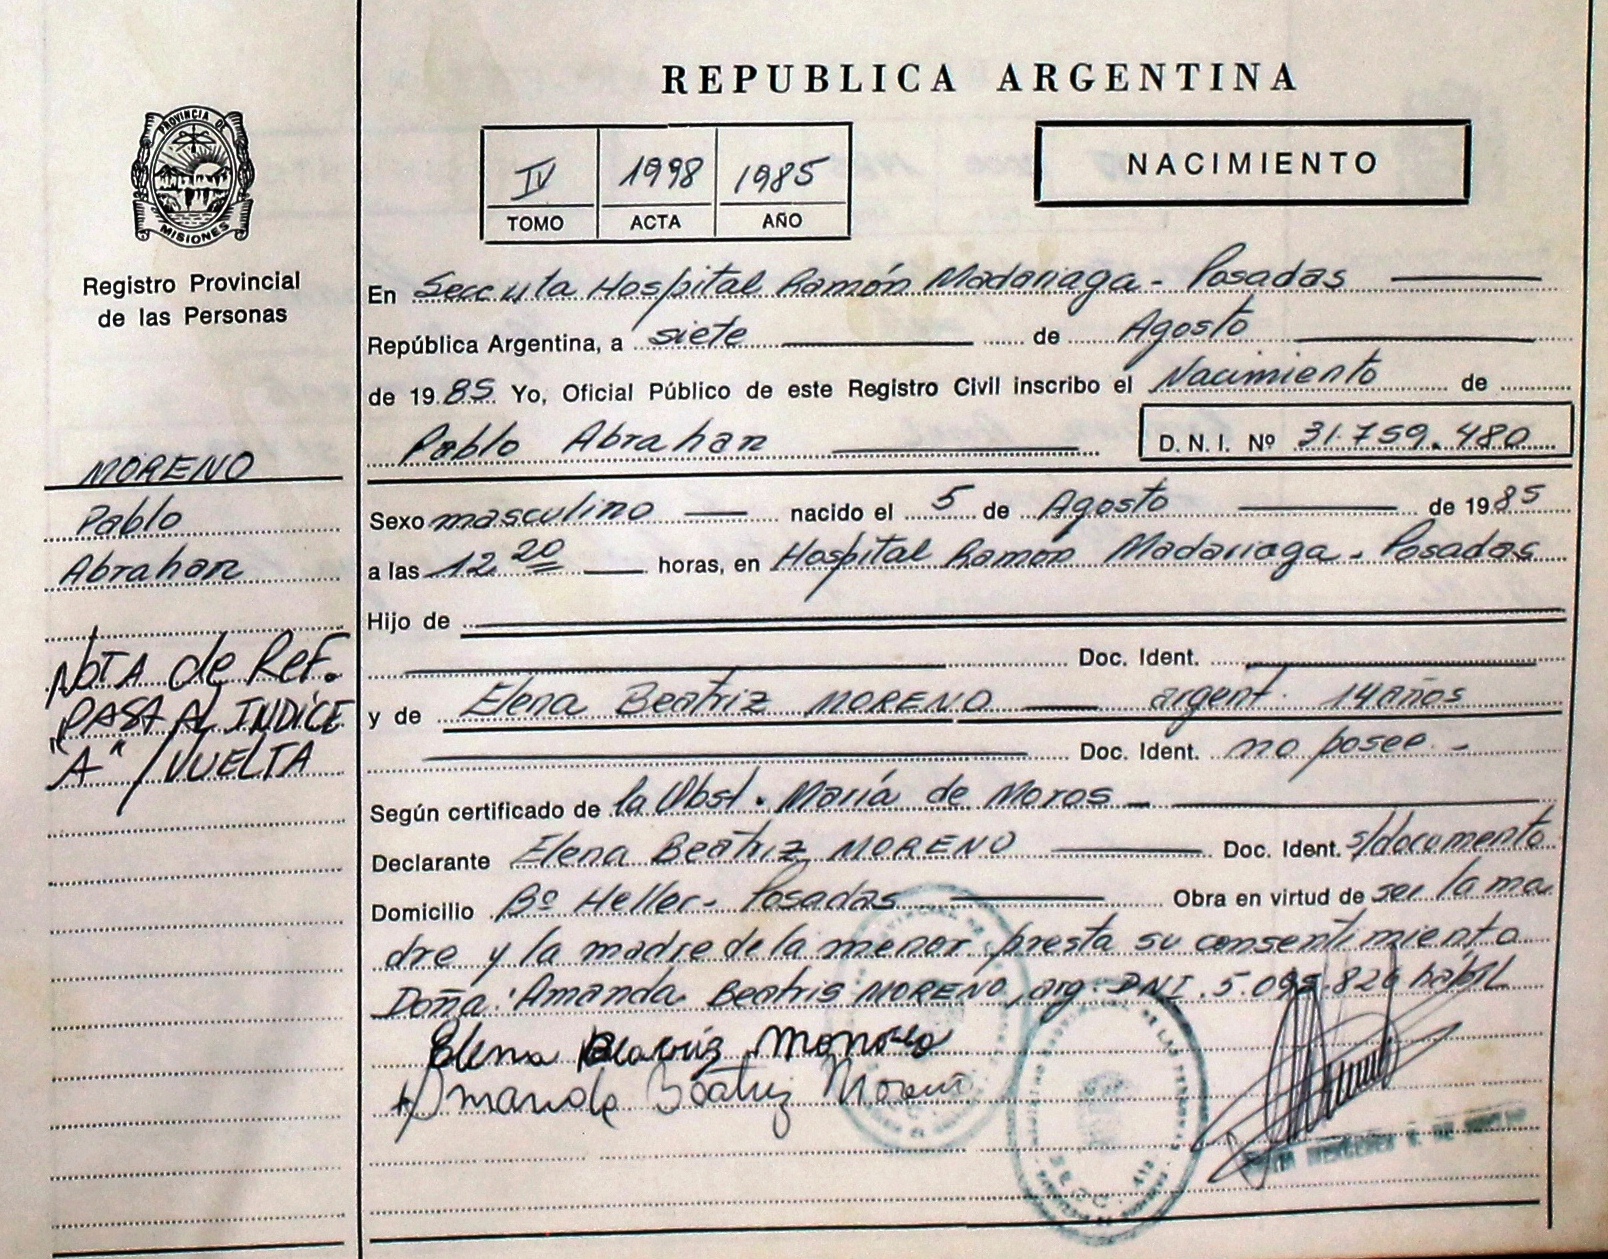 REPUBLICA ARGENTINA
PROVINCIA DE
MISIONES
Registro Provincial
de las Personas
IV 1998 1985
TOMO ACTA AÑO
NACIMIENTO
En Secc yta Hospital Ramón Madariaga - Posadas
República Argentina, a siete de Agosto
de 1985 Yo, Oficial Público de este Registro Civil inscribo el Nacimiento de
Pablo Abrahan D. N. I. Nº 31.759.480
MORENO
Pablo
Abrahan
NOTA de REF.
PASA AL INDICE
"A" / VUELTA
Sexo masculino nacido el 5 de Agosto de 1985
a las 12 20 horas, en Hospital Ramón Madariaga - Posadas
Hijo de
Doc. Ident.
y de Elena Beatriz MORENO argent. 14 años
Doc. Ident. no posee -
Según certificado de la Obst. María de Moros
Declarante Elena Beatriz MORENO Doc. Ident. s/documento
Domicilio Bº Heller - Posadas Obra en virtud de ser la ma
dre y la madre de la menor presta su consentimiento
Doña: Amanda Beatris MORENO, arg. DNI. 5.095.826 hábil
Elena Beatriz Moreno
Amanda Beatriz Moreno